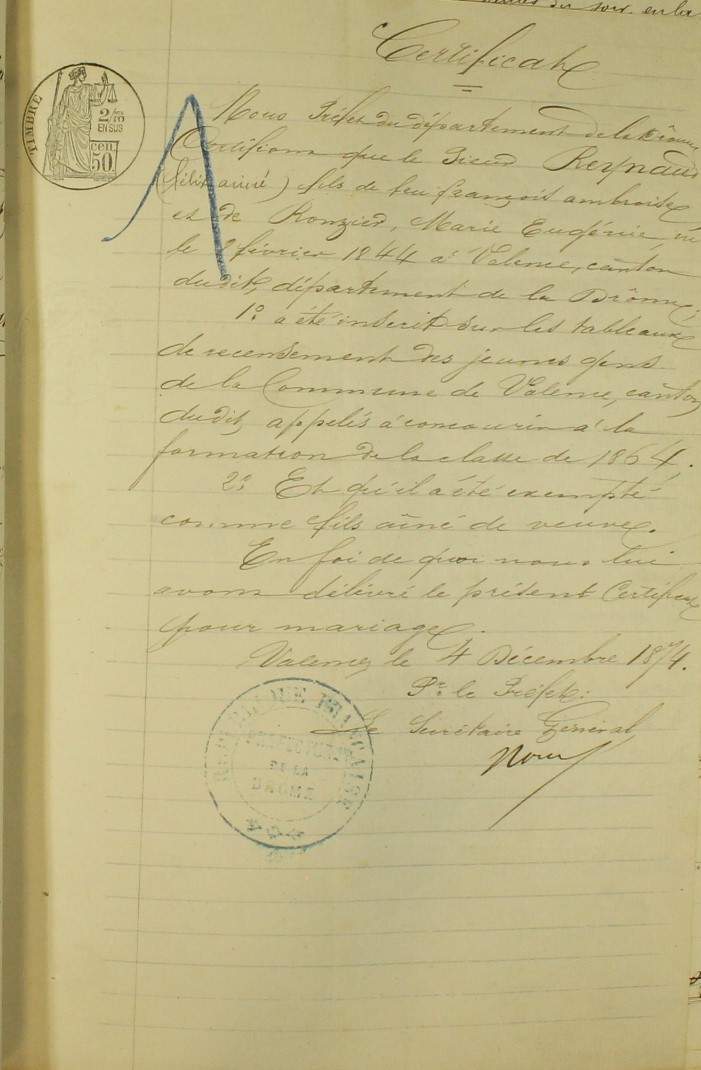 du soir. en la
Certificat
TIMBRE
2/10
EN SUS
50 CEN
Nous Préfet du département de la Drôme
Certifions que le Sieur Reynaud
(félix aimé) fils de feu françois ambroise
et de Ronzier, Marie Eugénie, né
le 2 février 1844 à Valence, canton
dudit, département de la Drôme,
1º a été inscrit sur les tableaux
de recensement des jeunes gens
de la Commune de Valence, canton
dudit, appelés à concourir à la
formation de la classe de 1864.
2º Et qu'il a été exempté
comme fils aîné de veuve.
En foi de quoi nous lui
avons délivré le présent Certificat
pour mariage.
Valence, le 4 Décembre 1874.
Pr. le Préfet:
Le Secrétaire Général,
RÉPUBLIQUE FRANÇAISE
PRÉFECTURE
DE LA
DROME